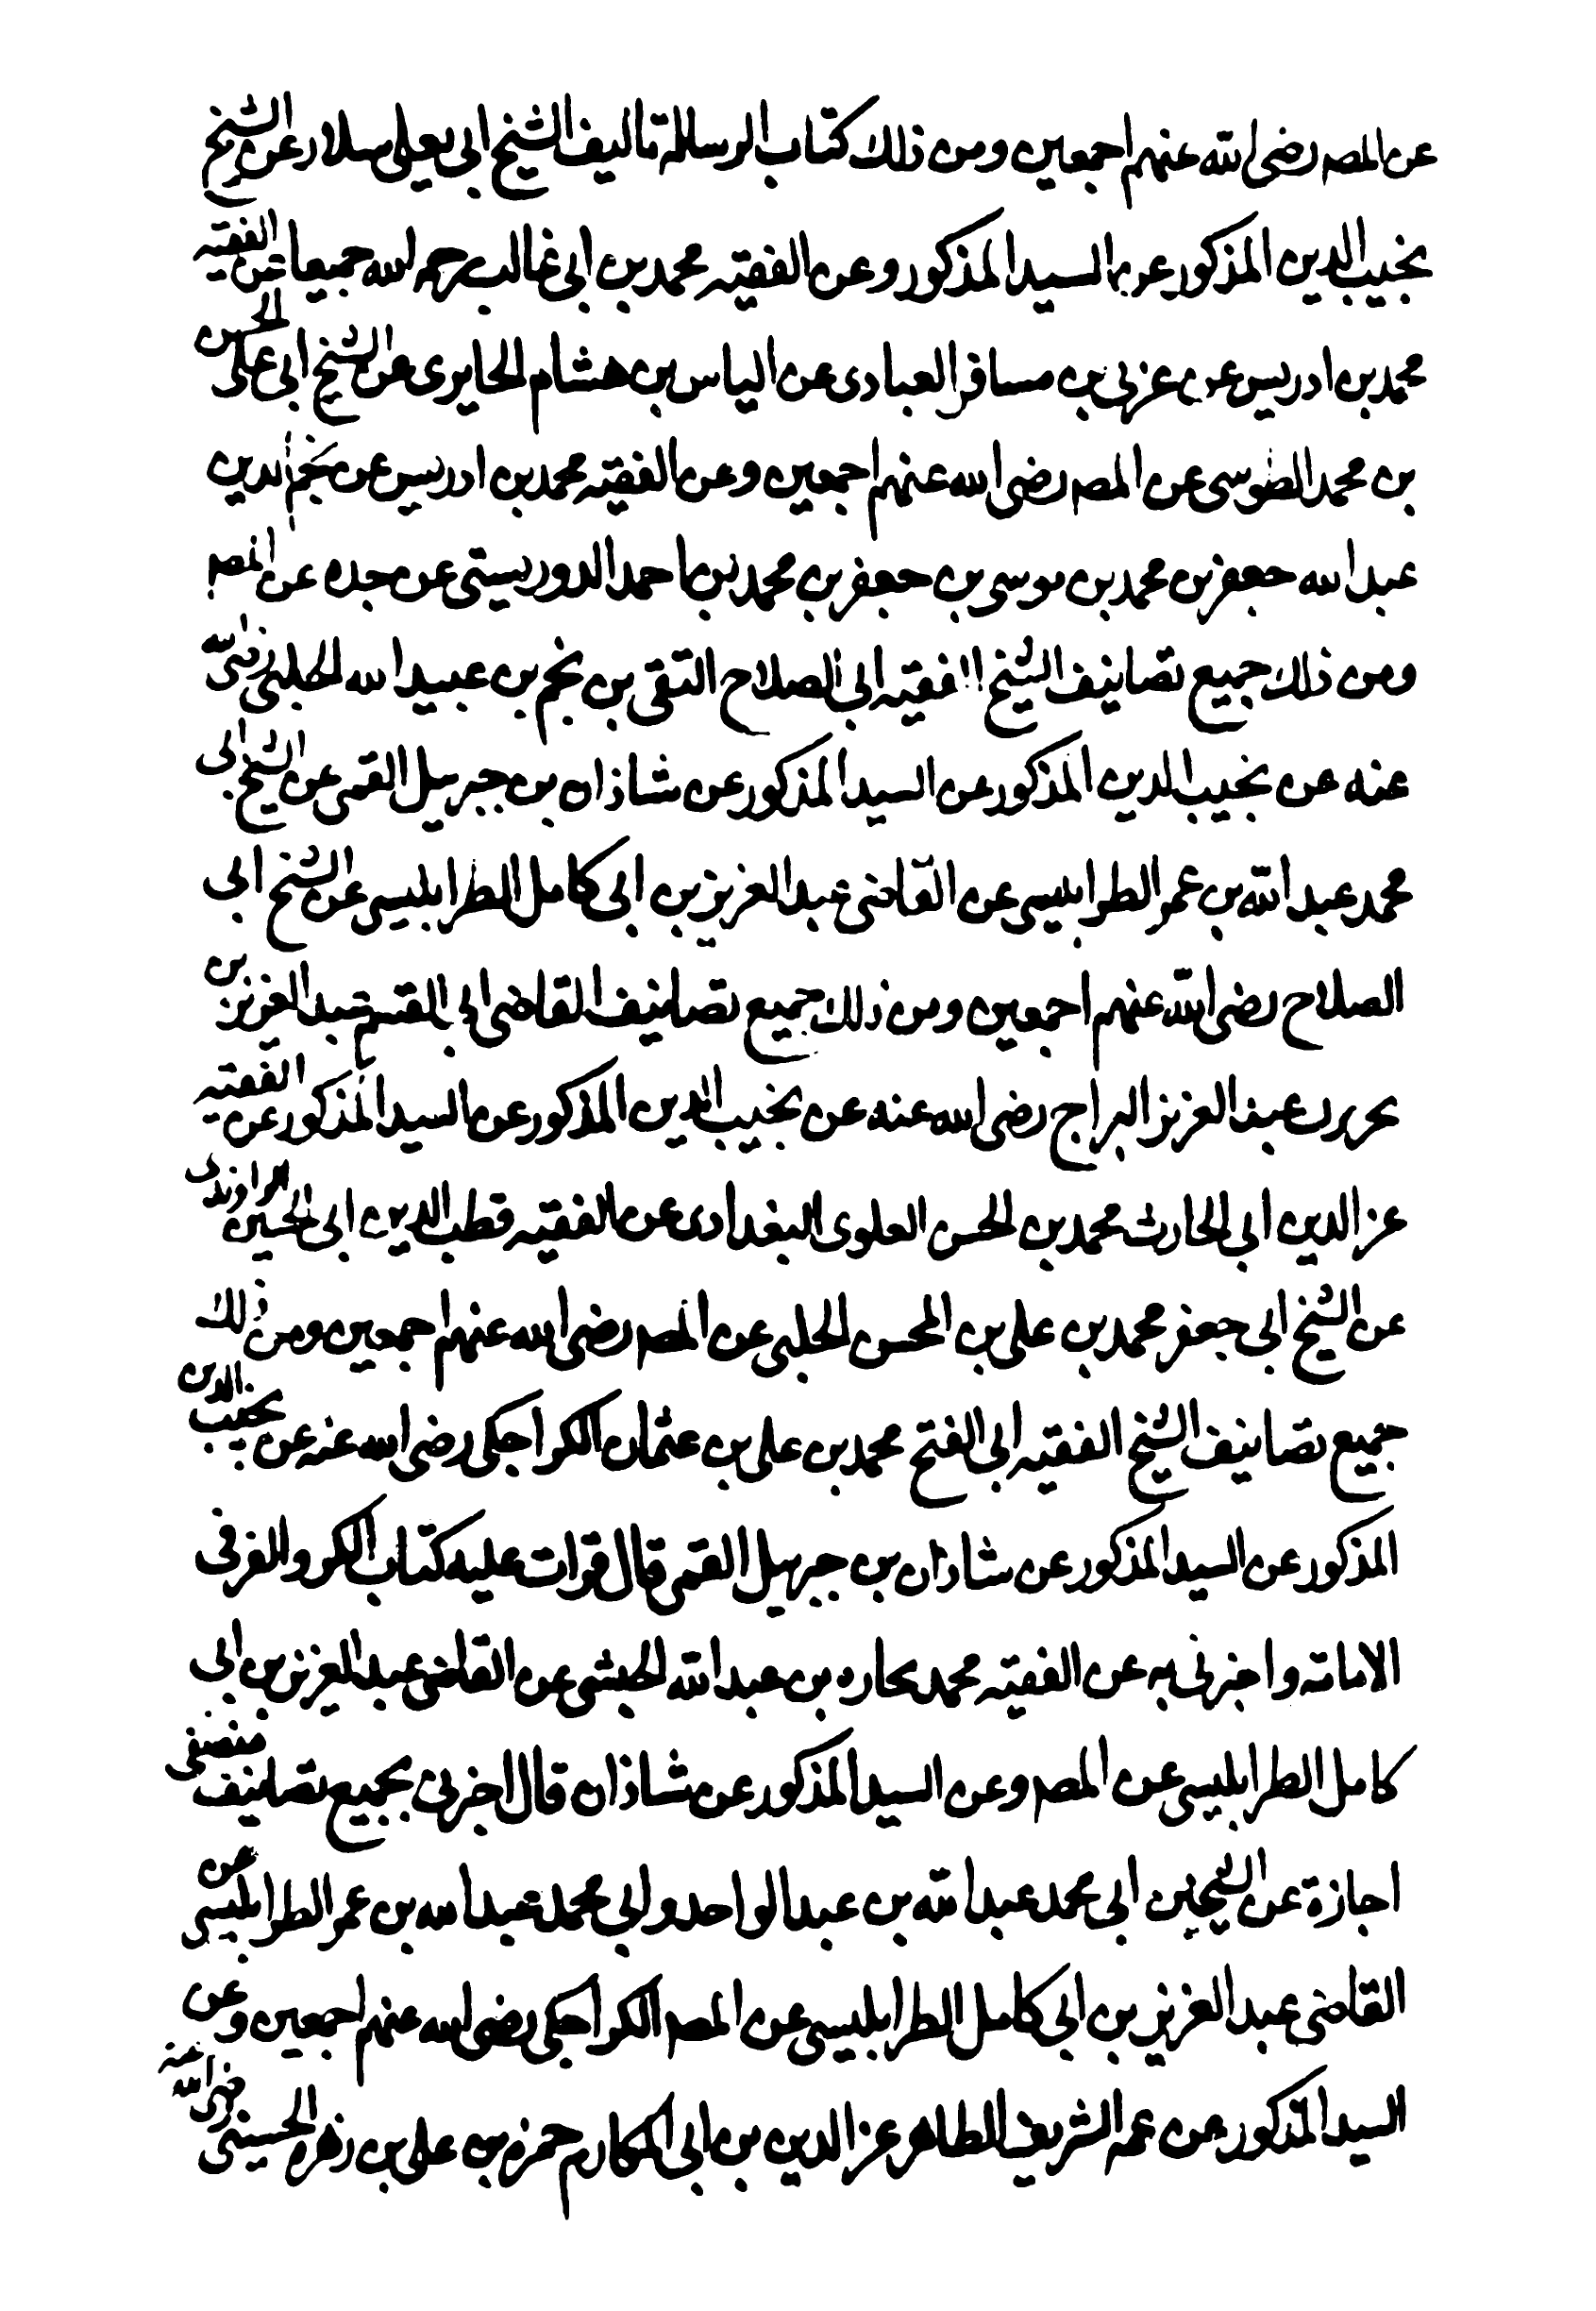 عن المصه رضى الله عنهم اجمعين ومن ذلك كتاب الرسالة تاليف الشيخ ابى يعلى سلار عن الشيخ
نجيب الدين المذكور عن السيد المذكور وعن الفقيه محمد بن ابى غالب رحمهم الله جميعا عن الفقيه
محمد بن ادريس عن عزبى بن مسافر العبادى عن الياس بن هشام الحايرى عن الشيخ ابى على الحسن
بن محمد الطوسى عن المصه رضى الله عنهم اجمعين وعن الفقيه محمد بن ادريس عن نجم الدين
عبد الله جعفر بن محمد بن موسى بن جعفر بن محمد بن احمد الدوريستى عن جده عن المصه
ومن ذلك جميع تصانيف الشيخ الفقيه ابى الصلاح التقى بن نجم بن عبيد الله الحلبى رضى الله
عنه عن نجيب الدين المذكور عن السيد المذكور عن شاذان بن جبرييل القمى عن الشيخ ابى
محمد عبد الله بن عمر الطرابلسى عن القاضى عبد العزيز بن ابى كامل الطرابلسى عن الشيخ ابى
الصلاح رضى الله عنهم اجمعين ومن ذلك جميع تصانيف القاضى ابى القسم عبد العزيز بن
نحرير بن عبد العزيز البراج رضى الله عنه عن نجيب الدين المذكور عن السيد المذكور عن الفقيه
عز الدين ابى الحارث محمد بن الحسن العلوى البغدادى عن الفقيه قطب الدين ابى الحسين الراوندى
عن الشيخ ابى جعفر محمد بن على بن المحسن الحلبى عن المصه رضى الله عنهم اجمعين ومن ذلك
جميع تصانيف الشيخ الفقيه ابى الفتح محمد بن على بن عثمان الكراجكى رضى الله عنه عن نجيب الدين
المذكور عن السيد المذكور عن شاذان بن جبرييل القمى قال قرات عليه كتاب الكر والفر فى
الامامة واخبرنى به عن الفقيه محمد بن عبد الله الحبشى عن القاضى عبد العزيز بن ابى
كامل الطرابلسى عن المصه وعن السيد المذكور عن شاذان قال اخبرنى بجميع تصانيف
اجازة عن الشيخين ابى محمد عبد الله بن عبد الواحد وابى محمد عبد الله بن عمر الطرابلسى عن
القاضى عبد العزيز بن ابى كامل الطرابلسى عن المصه الكراجكى رضى الله عنهم اجمعين وعن
السيد المذكور عن عمه الشريف الطاهر عز الدين بن ابى المكارم حمزه بن على بن زهره الحسينى رضى الله عنه